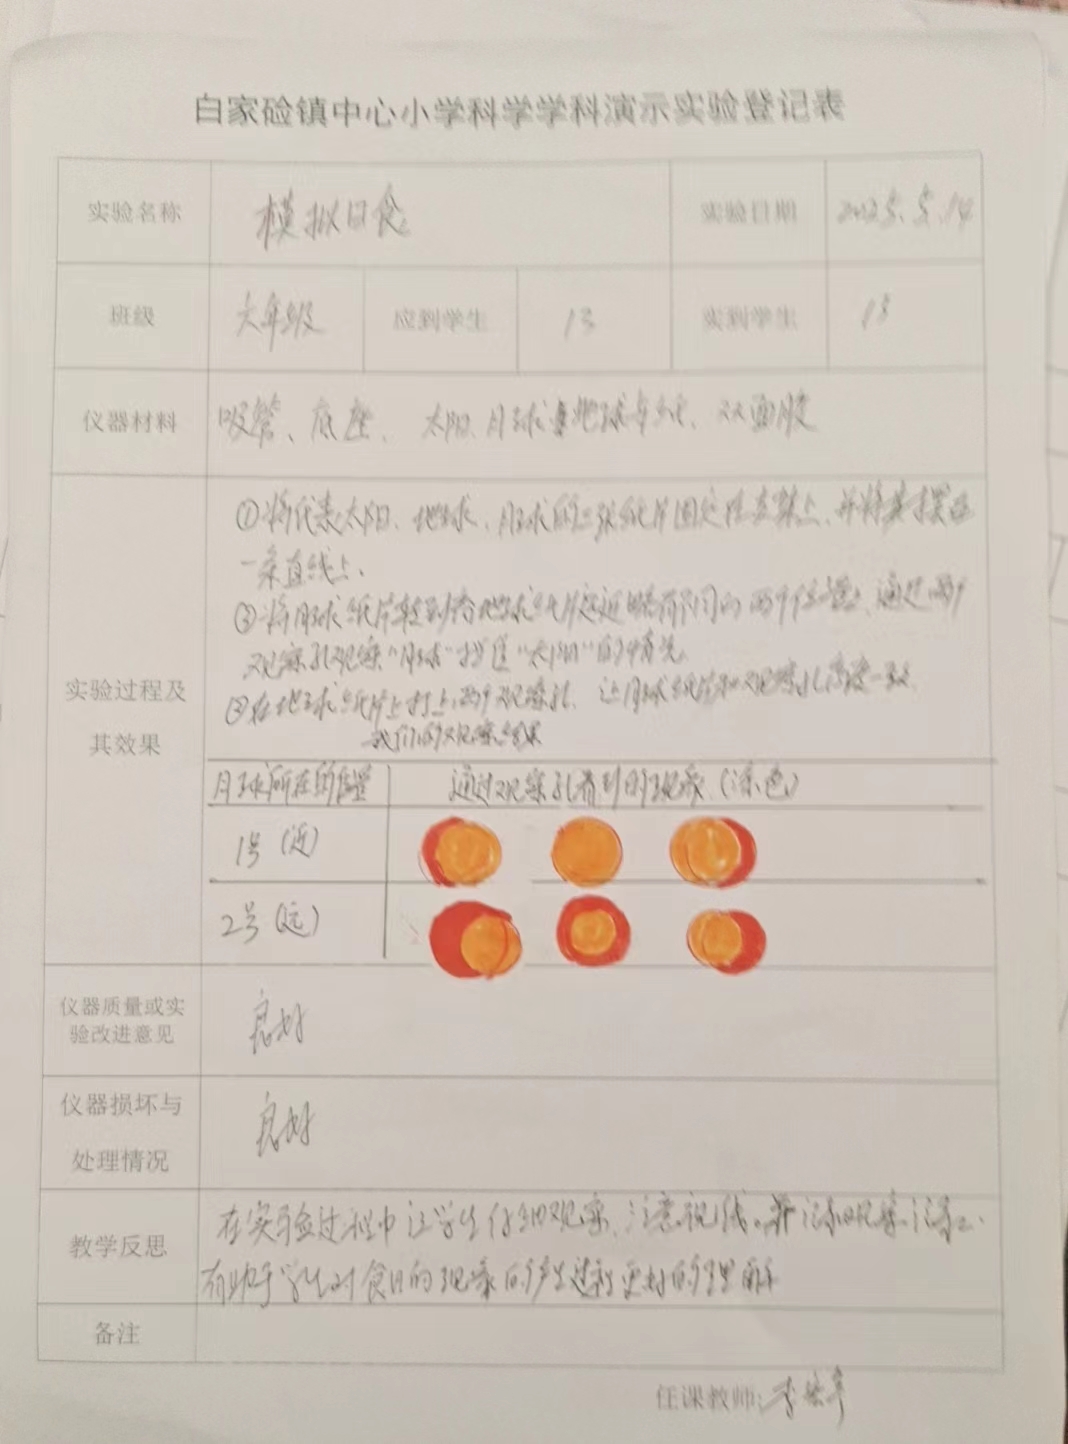 白家硷镇中心小学科学学科演示实验登记表
实验名称 模拟日食 实验日期 2025.5.14
班级 六年级 应到学生 13 实到学生 13
仪器材料 吸管、底座、太阳、月球 地球 纸、双面胶
①将代表太阳、地球、月球的三张纸片固定在支架上,并将其摆在
一条直线上、
②将月球纸片转到离地球纸片远近略有不同的两个位置,通过两个
观察孔观察“月球”挡住“太阳”的情况
实验过程及
③在地球纸片上打上两个观察孔,让月球纸片和观察孔高度一致
其效果
我们的观察结果
月球所在的位置 通过观察孔看到的现象(涂色)
1号(近)
2号(远)
仪器质量或实
验改进意见
良好
仪器损坏与
处理情况
良好
教学反思
在实验过程中让学生仔细观察,注意视线。并 观察记录
有助于学生对食日的现象的产生过程更好的理解
备注
任课教师:李